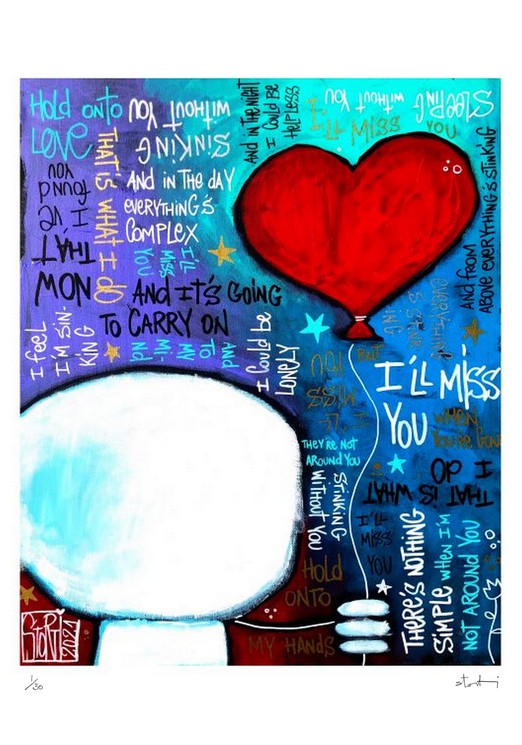 HOLD ONTO
LOVE
WITHOUT YOU
SINKING
AND IN THE NIGHT
I COULD BE
HELPLESS
I'LL MISS
YOU
WITHOUT YOU
SLEEPING
THAT'S WHAT I DO
I'VE
FOUND
YOU
THAT
NOW
AND IN THE DAY
EVERYTHING'S
COMPLEX
I'LL
MISS
YOU
AND IT'S GOING
TO CARRY ON
AND FROM
ABOVE EVERYTHING'S STINKING
I FEEL
I'M SIN-
KING
AND
TO
MY
MI-
ND
I COULD BE
LONELY
BUT
I'LL
MISS
YOU
I'LL MISS
YOU
WHEN
YOU'RE GONE
THAT IS WHAT
I DO
THEY'RE NOT
AROUND YOU
STINKING
WITHOUT YOU
I'LL
MISS
YOU
HOLD
ONTO
MY HANDS
THERE'S NOTHING
SIMPLE WHEN I'M
NOT AROUND YOU
STORTI
2021
1/30